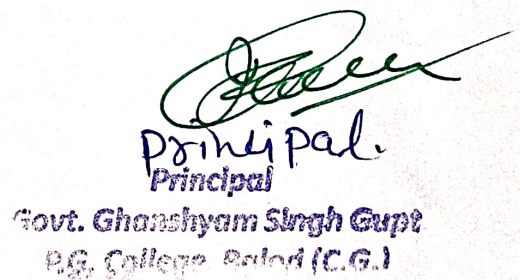 principal.
Principal
Govt. Ghanshyam Singh Gupt
P.G. College Balod (C.G.)